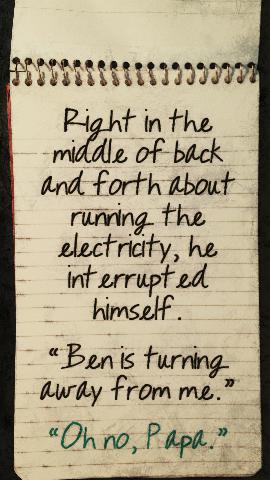 Right in the
middle of back
and forth about
running the
electricity, he
interrupted
himself.
“Ben is turning
away from me.”
“Oh no, Papa.”